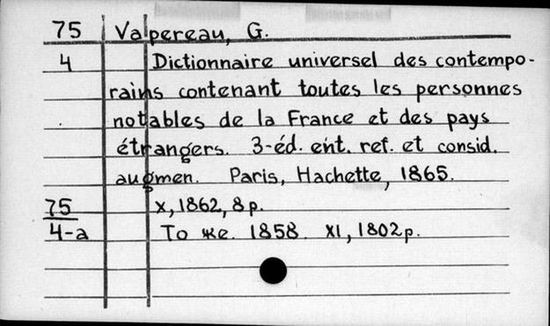 75 Valpereau, G.
4 Dictionnaire universel des contempo-
rains contenant toutes les personnes
notables de la France et des pays
étrangers. 3-éd. ent. ref. et consid.
augmen. Paris, Hachette, 1865.
75 X, 1862, 8 p.
4-a То же. 1858. XI, 1802 p.